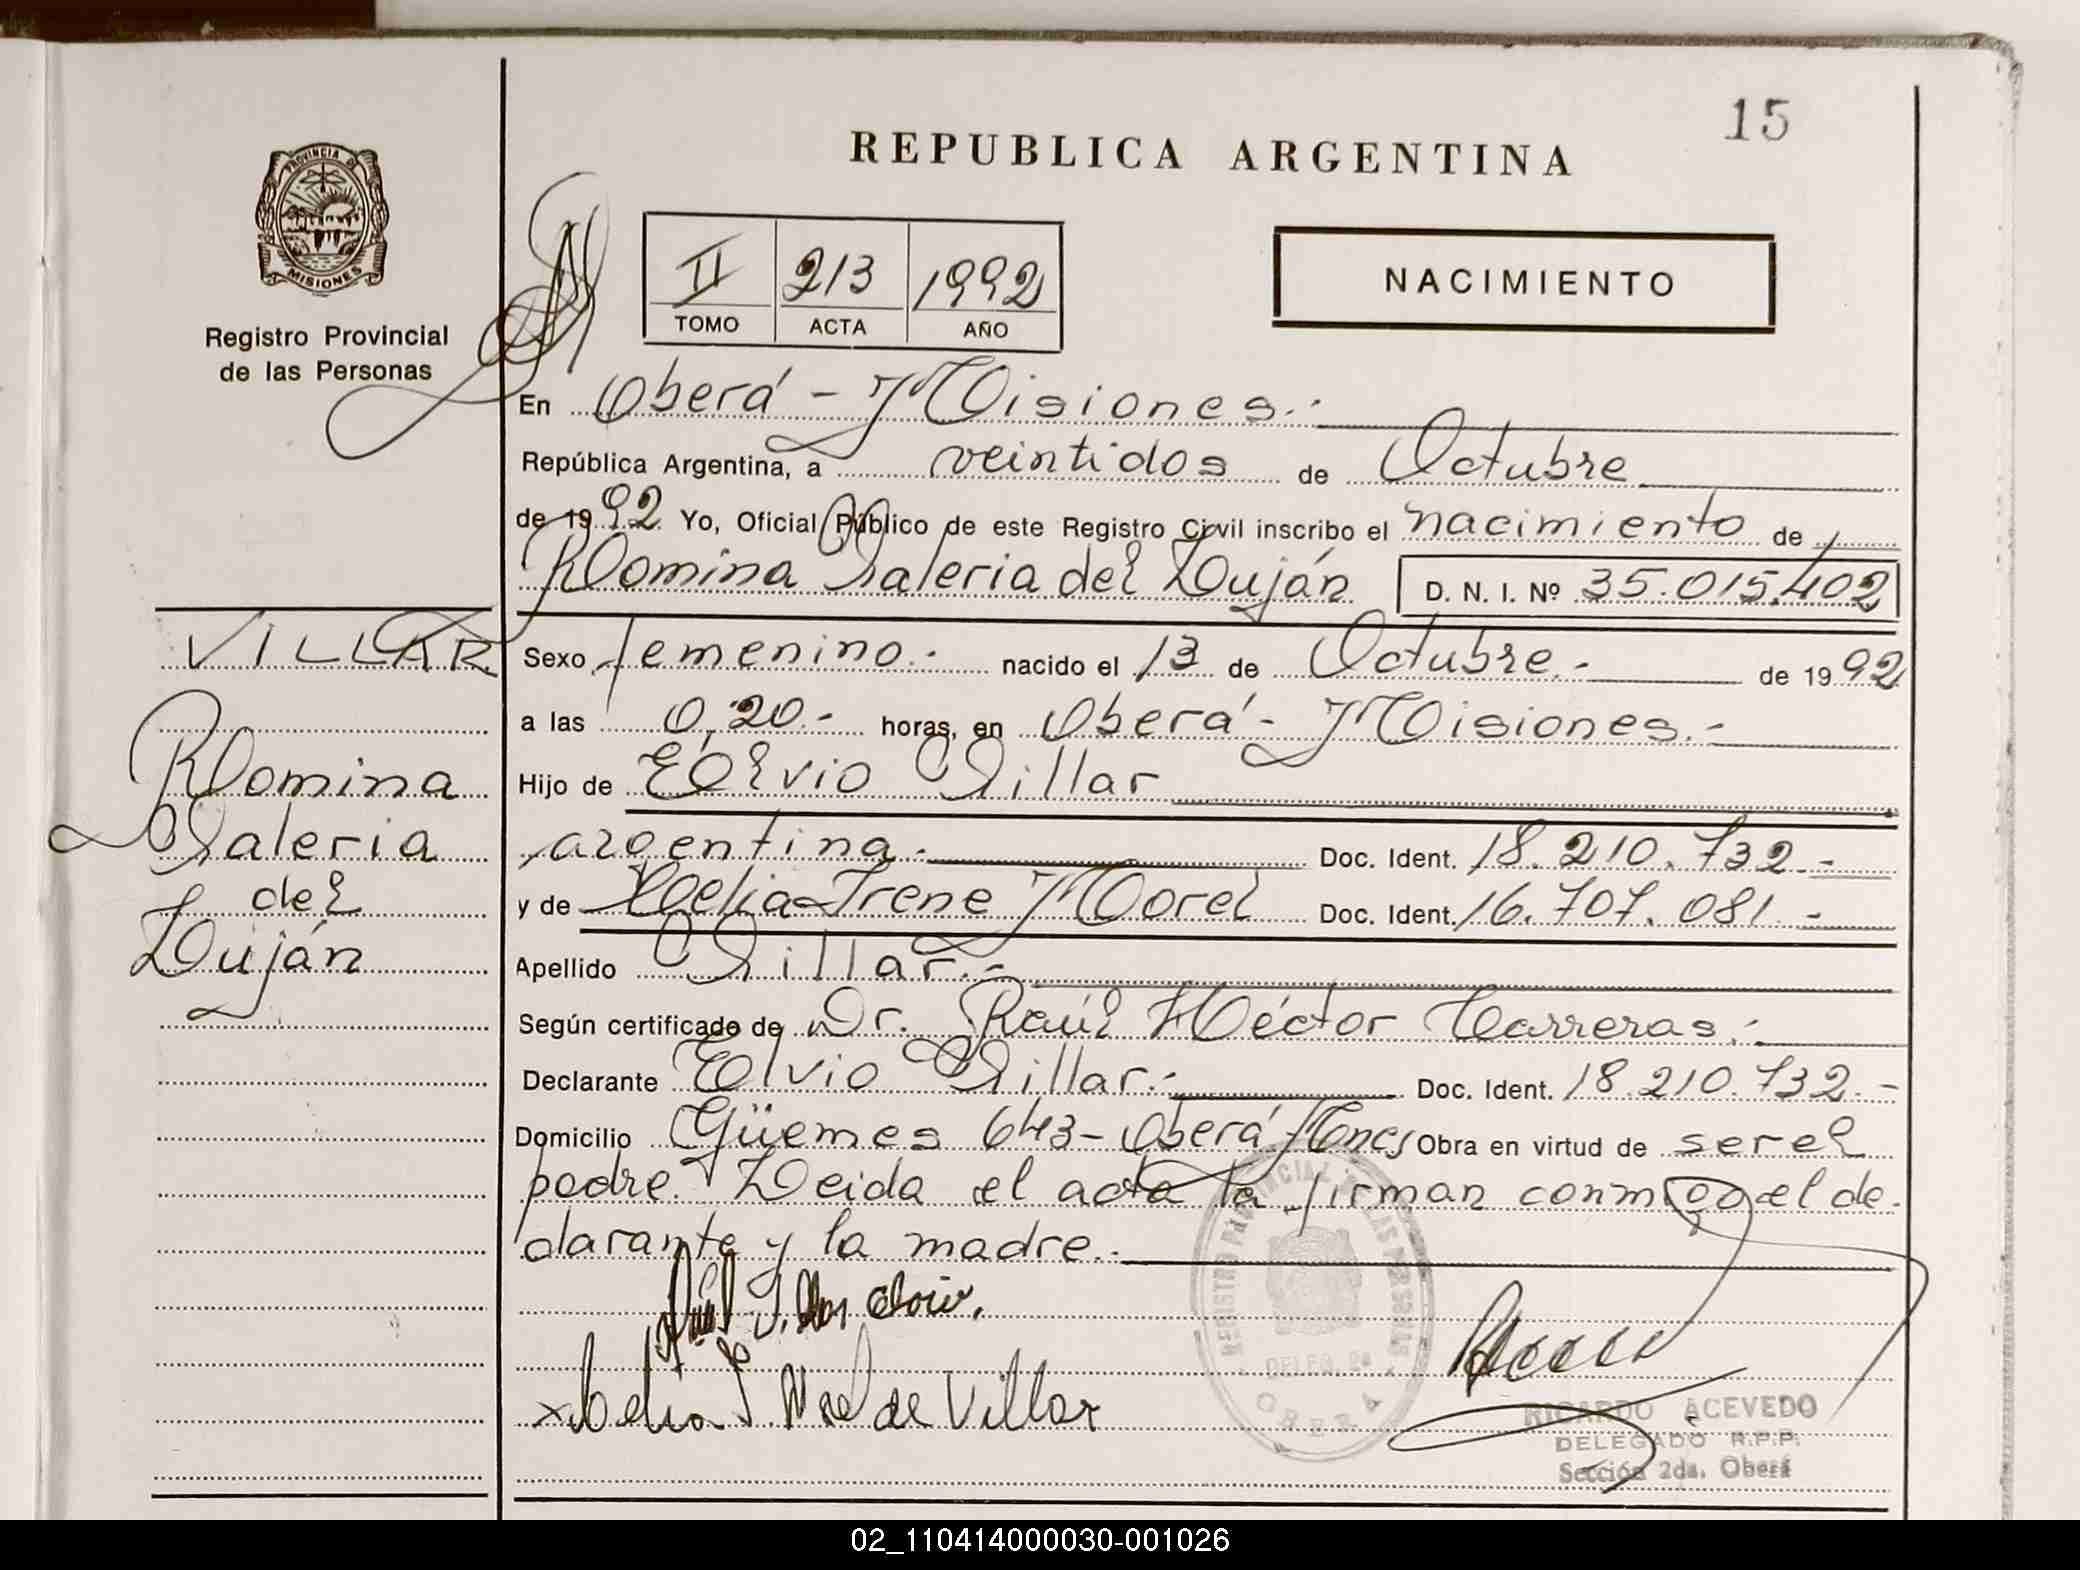 15
REPUBLICA ARGENTINA
PROVINCIA DE
MISIONES
Registro Provincial
de las Personas
II 213 1992
TOMO ACTA AÑO
NACIMIENTO
En Oberá - Misiones.-
República Argentina, a veintidos de Octubre
de 1992. Yo, Oficial Público de este Registro Civil inscribo el nacimiento de
Romina Valeria del Luján D. N. I. Nº 35.015.402
VILLAR
Romina
Valeria
del
Luján
Sexo femenino.- nacido el 13 de Octubre.- de 1992
a las 0,20.- horas, en Oberá - Misiones.-
Hijo de Elvio Villar
argentina.- Doc. Ident. 18.210.732.-
y de Celia Irene Morel Doc. Ident. 16.707.081.-
Apellido Villar.-
Según certificado de Dr. Raúl Héctor Carreras.-
Declarante Elvio Villar.- Doc. Ident. 18.210.732.-
Domicilio Güemes 643 - Oberá Mnes Obra en virtud de ser el
padre. Leida el acta la firman conmigo el de-
clarante y la madre.-
REGISTRO PROVINCIAL DE LAS PERSONAS
DELEG. 2a
OBERA
Celia I. Morel de Villar
RICARDO ACEVEDO
DELEGADO R.P.P.
Sección 2da. Oberá
02_110414000030-001026